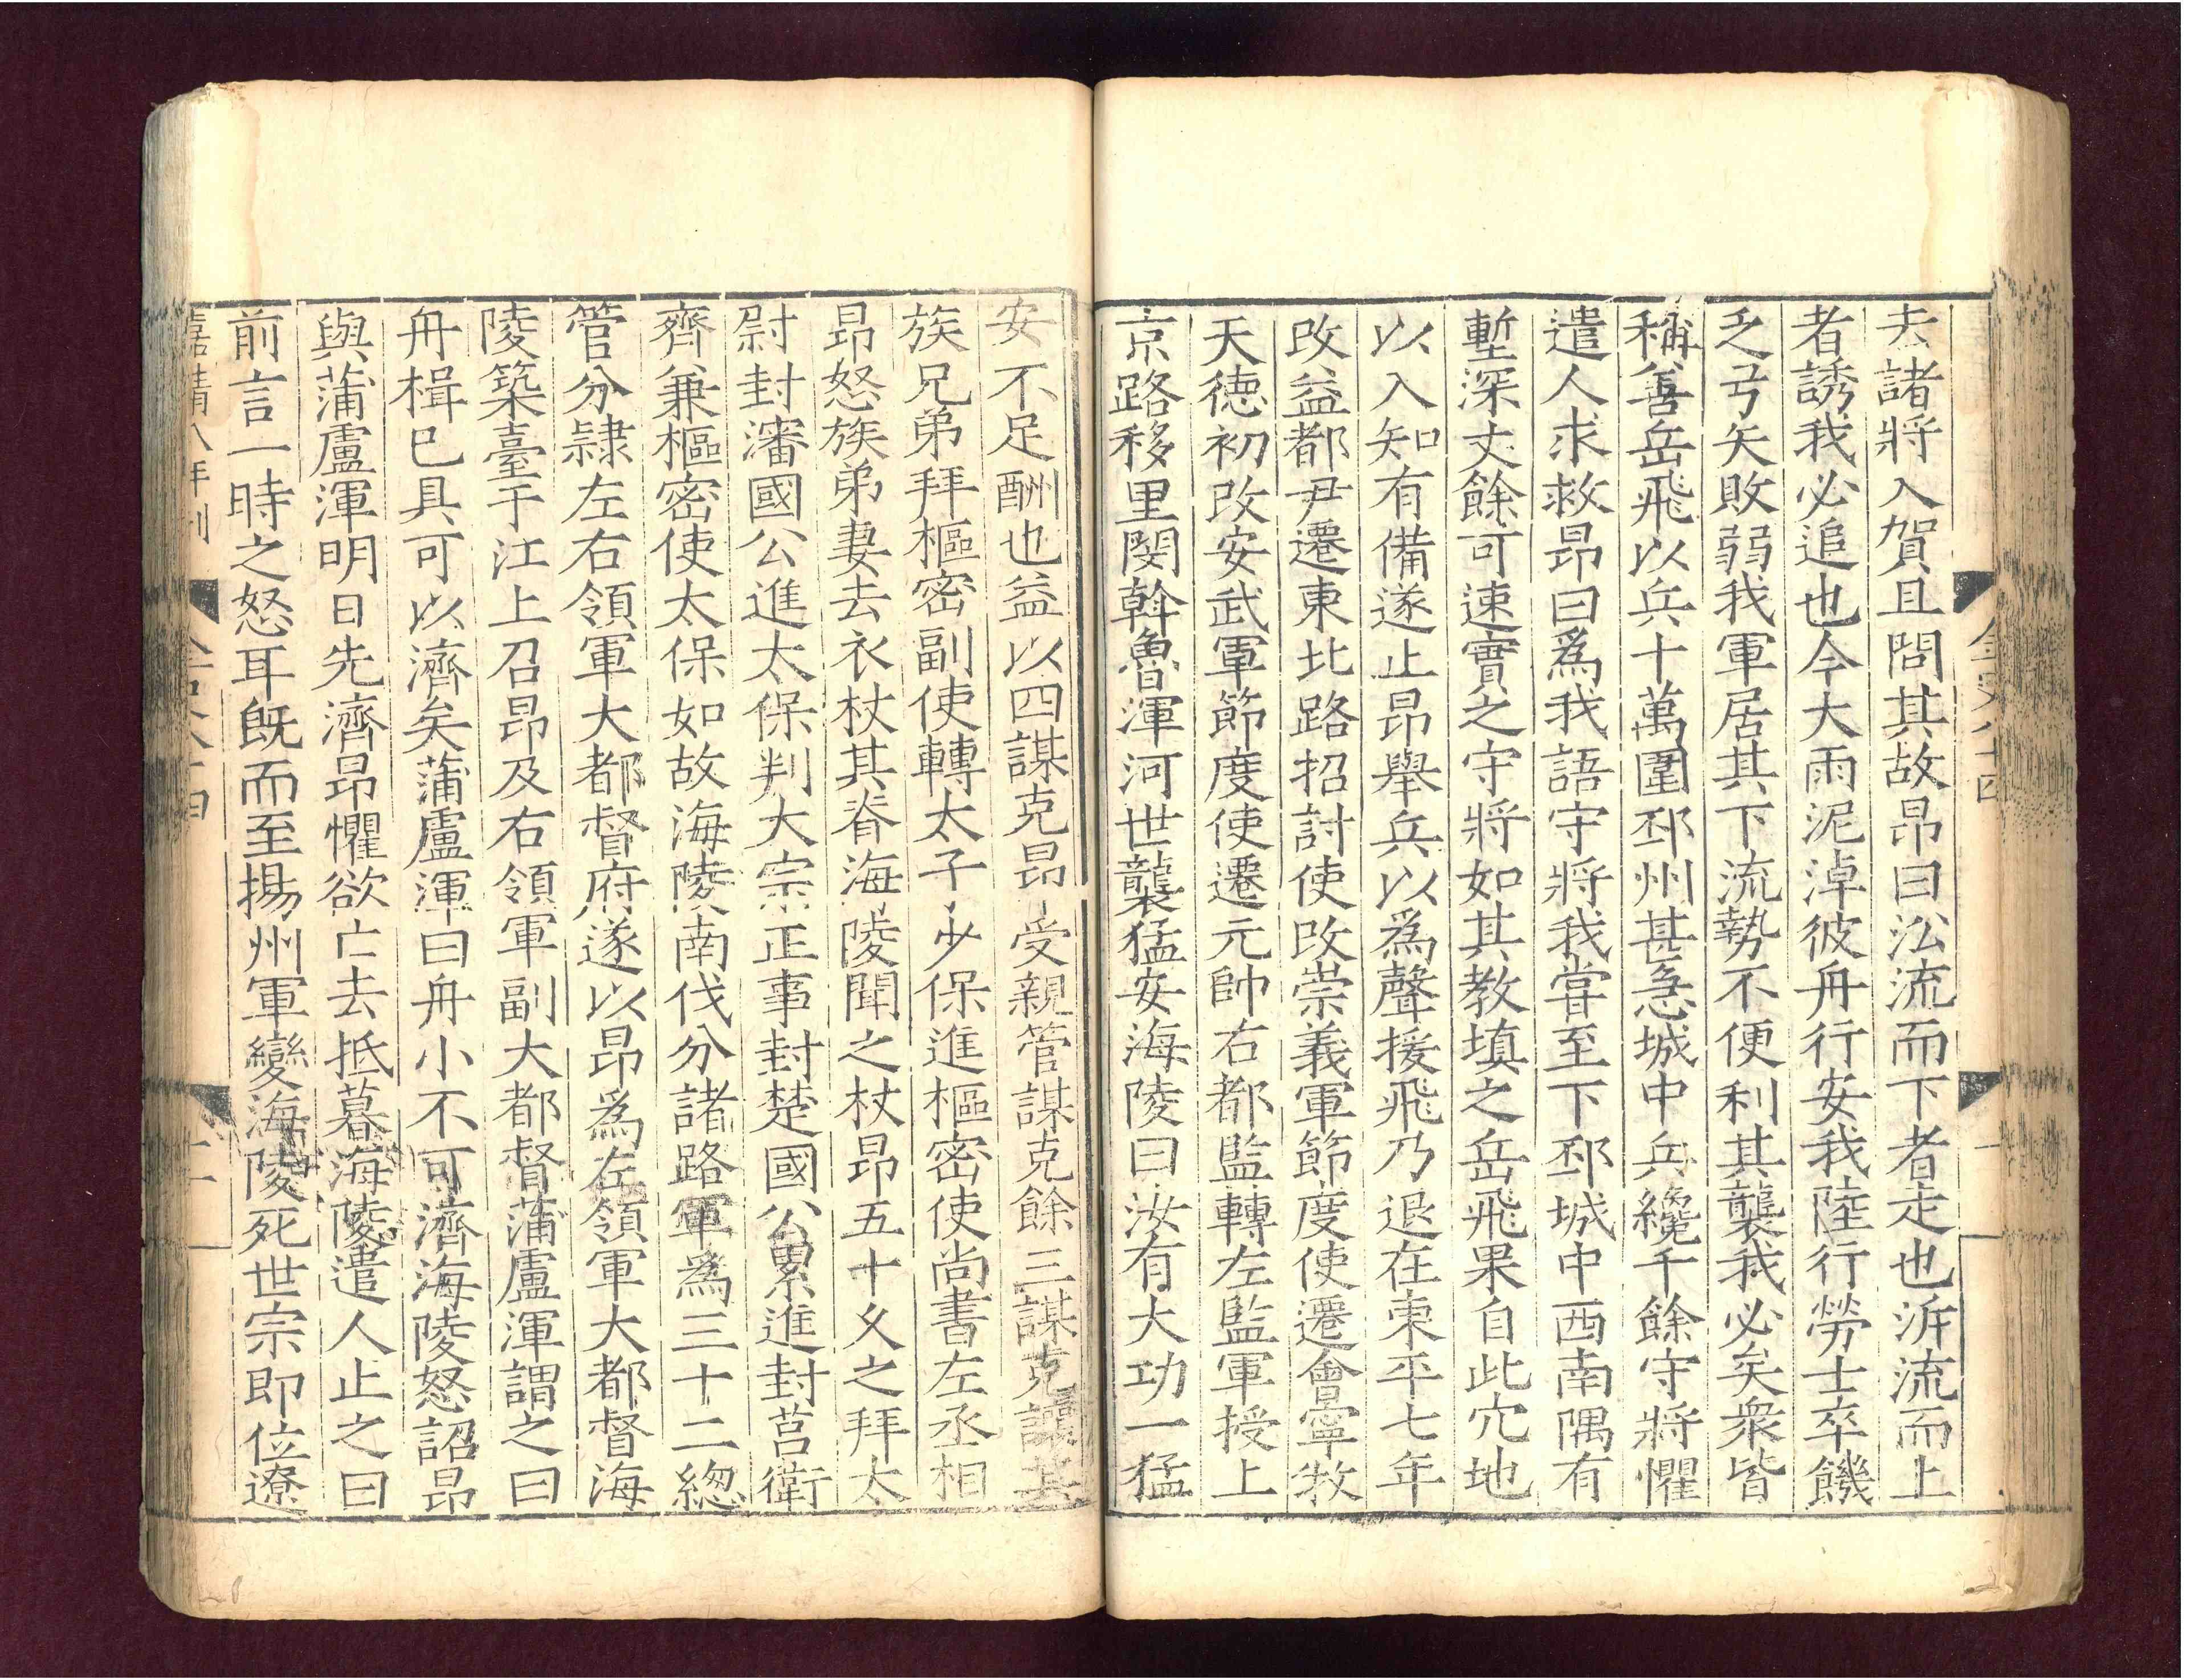 去諸將入賀且問其故昂曰㳂流而下者走也泝流而上
者誘我必追也今大雨泥淖彼舟行安我陸行勞士卒饑
乏弓矢敗弱我軍居其下流勢不便利其襲我必矣衆皆
稱善岳飛以兵十萬圍邳州甚急城中兵纔千餘守將懼
遣人求救昂曰爲我語守將我嘗至下邳城中西南隅有
塹深丈餘可速實之守將如其教填之岳飛果自此穴地
以入知有備遂止昂舉兵以爲聲援飛乃退在東平七年
改益都尹遷東北路招討使改崇義軍節度使遷會寧牧
天德初改安武軍節度使遷元帥右都監轉左監軍授上
京路移里閔斡魯渾河世襲猛安海陵曰汝有大功一猛
安不足酬也益以四謀克昂受親管謀克餘三謀克讓其
族兄弟拜樞密副使轉太子少保進樞密使尚書左丞相
昂怒族弟妻去衣杖其脊海陵聞之杖昂五十久之拜太
尉封瀋國公進太保判大宗正事封楚國公累進封莒衛
齊兼樞密使太保如故海陵南伐分諸路軍爲三十二緫
管分隸左右領軍大都督府遂以昂爲左領軍大都督海
陵築臺于江上召昂及右領軍副大都督蒲盧渾謂之曰
舟楫已具可以濟矣蒲盧渾曰舟小不可濟海陵怒詔昂
與蒲盧渾明日先濟昂懼欲亡去抵暮海陵遣人止之曰
前言一時之怒耳既而至揚州軍變海陵死世宗即位遼
嘉靖八年刊